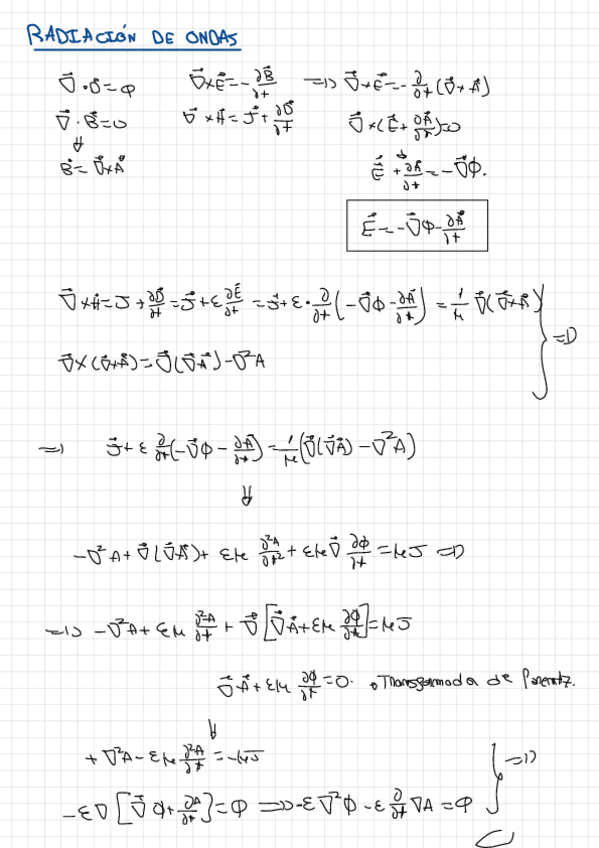 RADIACIÓN DE ONDAS
∇⃗·D⃗=φ ∇⃗×E⃗=-∂B⃗/∂t ⇒ ∇⃗×E⃗=-∂/∂t(∇⃗×A⃗)
∇⃗·B⃗=0 ∇⃗×H⃗=J⃗+∂D⃗/∂t ∇⃗×(E⃗+∂A⃗/∂t)=0
⇓ ↓
B⃗=∇⃗×A⃗ E⃗+∂A⃗/∂t=-∇⃗Φ.
E⃗=-∇⃗Φ-∂A⃗/∂t
∇⃗×H⃗=J+∂D⃗/∂t=J⃗+ε∂E⃗/∂t=J⃗+ε·∂/∂t(-∇⃗Φ-∂A⃗/∂t)=1/μ ∇⃗(∇⃗×A⃗) } ⇒
∇⃗×(∇⃗×A⃗)=∇⃗(∇⃗A⃗)-∇²A
⇒ J⃗+ε∂/∂t(-∇⃗Φ-∂A⃗/∂t)=1/μ(∇⃗(∇⃗A⃗)-∇²A)
⇓
-∇²A+∇⃗(∇⃗A⃗)+εμ ∂²A/∂t²+εμ∇⃗ ∂Φ/∂t=μJ ⇒
⇒ -∇²A+εμ ∂²A/∂t+∇⃗[∇⃗A⃗+εμ ∂Φ/∂t]=μJ
∇⃗·A⃗+εμ ∂Φ/∂t=0. Transformada de
⇓
+∇²A-εμ ∂²A/∂t=-μJ } ⇒
-ε∇[∇⃗Φ+∂A/∂t]=φ ⇒ -ε∇²Φ-ε ∂/∂t ∇A=φ